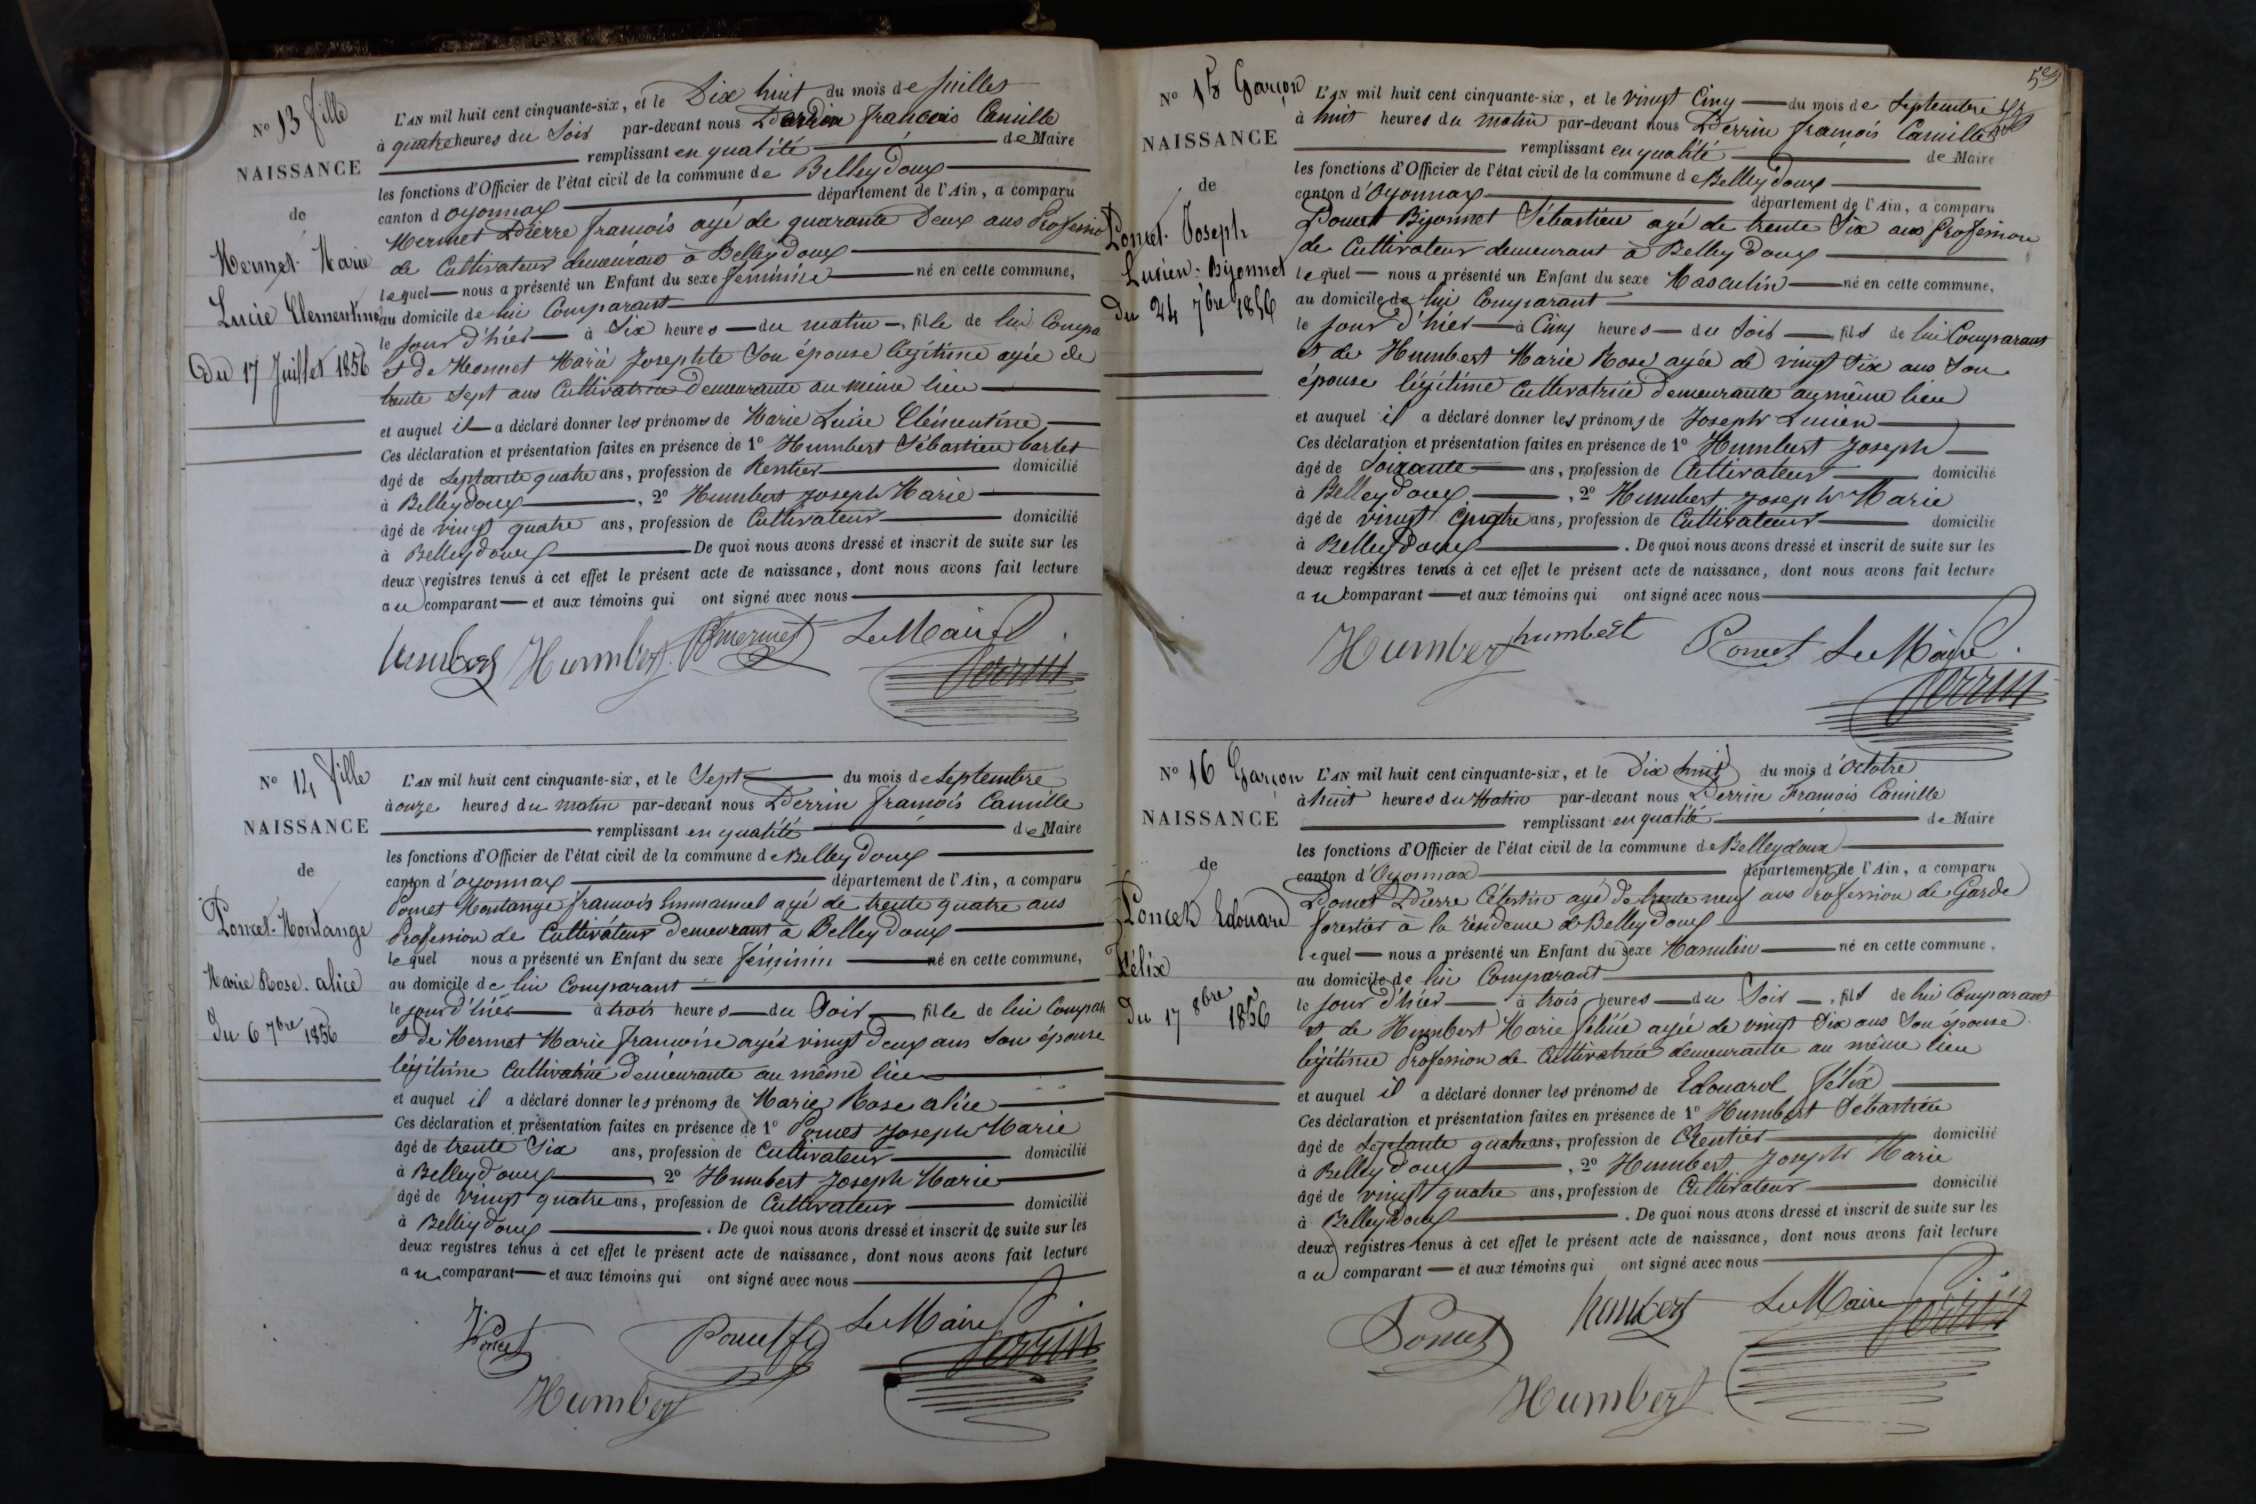 N° 13 fille
NAISSANCE
de
Mermet Marie
Lucie Clementine
Du 17 Juillet 1856
L'AN mil huit cent cinquante-six, et le Dix huit du mois de Juillet
à quatre heures du Soir par-devant nous Perrin françois Camille
remplissant en qualité de Maire
les fonctions d'Officier de l'état civil de la commune de Belleydoux
canton d'oyonnax département de l'Ain, a comparu
Mermet Pierre francois agé de quarante Deux ans Professio
de Cultivateur demeurant à Belleydoux
lequel nous a présenté un Enfant du sexe féminin né en cette commune,
au domicile de lui Comparant
le jour d'hier à Six heures du matin, fille de lui Compa
et de Mermet Marie Josephte Son épouse légitime agée de
trente Sept ans Cultivatrice demeurante au même lieu
et auquel il a déclaré donner les prénoms de Marie Lucie Clémentine
Ces déclaration et présentation faites en présence de 1° Humbert Sébastien barlet
âgé de Septante quatre ans, profession de Rentier domicilié
à Belleydoux, 2° Humbert Joseph Marie
âgé de vingt quatre ans, profession de Cultivateur domicilié
à Belleydoux De quoi nous avons dressé et inscrit de suite sur les
deux registres tenus à cet effet le présent acte de naissance, dont nous avons fait lecture
au comparant et aux témoins qui ont signé avec nous
humbert Humbert mermet Le Maire
Perrin
N° 14 fille
NAISSANCE
de
Poncet-Montange
Marie Rose. alice
Du 6 7bre 1856
L'AN mil huit cent cinquante-six, et le Sept du mois de Septembre
à onze heures du matin par-devant nous Perrin françois Camille
remplissant en qualité de Maire
les fonctions d'Officier de l'état civil de la commune de Belleydoux
canton d'oyonnax département de l'Ain, a comparu
Poncet Montange francois Emmanuel agé de trente quatre ans
Profession de Cultivateur demeurant à Belleydoux
lequel nous a présenté un Enfant du sexe féminin né en cette commune,
au domicile de lui Comparant
le jour d'hier à trois heures du Soir, fille de lui Compar
et de Mermet Marie francoise agée vingt deux ans Son épouse
légitime Cultivatrice demeurante au même lieu
et auquel il a déclaré donner les prénoms de Marie Rose alice
Ces déclaration et présentation faites en présence de 1° Poncet Joseph Marie
âgé de trente Six ans, profession de Cultivateur domicilié
à Belleydoux 2° Humbert Joseph Marie
âgé de vingt quatre ans, profession de Cultivateur domicilié
à Belleydoux. De quoi nous avons dressé et inscrit de suite sur les
deux registres tenus à cet effet le présent acte de naissance, dont nous avons fait lecture
au comparant et aux témoins qui ont signé avec nous
Poncet Poncet Le Maire
Perrin
Humbert
N° 15 Garçon
NAISSANCE
de
Poncet. Joseph
Lucien. Bijonnet
Du 24 7bre 1856
L'AN mil huit cent cinquante-six, et le vingt Cinq du mois de Septembre
à huit heures du matin par-devant nous Perrin françois Camille
remplissant en qualité de Maire
les fonctions d'Officier de l'état civil de la commune de Belleydoux
canton d'Oyonnax département de l'Ain, a comparu
Poncet Bijonnet Sébastien agé de trente Six ans Profession
de Cultivateur demeurant à Belleydoux
lequel nous a présenté un Enfant du sexe Masculin né en cette commune,
au domicile de lui Comparant
le Jour d'hier à Cinq heures du Soir, fils de lui Comparant
et de Humbert Marie Rose agée de vingt Six ans Son
épouse légitime Cultivatrice demeurante au même lieu
et auquel il a déclaré donner les prénoms de Joseph Lucien
Ces déclaration et présentation faites en présence de 1° Humbert Joseph
âgé de Soixante ans, profession de Cultivateur domicilié
à Belleydoux, 2° Humbert Joseph Marie
âgé de vingt quatre ans, profession de Cultivateur domicilié
à Belleydoux. De quoi nous avons dressé et inscrit de suite sur les
deux registres tenus à cet effet le présent acte de naissance, dont nous avons fait lecture
au comparant et aux témoins qui ont signé avec nous
Humbert humbert Poncet Le Maire
Perrin
N° 16 Garçon
NAISSANCE
de
Poncet Edouard
Félix
Du 17 8bre 1856
L'AN mil huit cent cinquante-six, et le Dix huit du mois d'Octobre
à huit heures du Matin par-devant nous Perrin François Camille
remplissant en qualité de Maire
les fonctions d'Officier de l'état civil de la commune de Belleydoux
canton d'Oyonnax département de l'Ain, a comparu
Poncet Pierre Célestin agé de trente neuf ans Profession de Garde
forestier à la résidence de Belleydoux
lequel nous a présenté un Enfant du sexe Masculin né en cette commune,
au domicile de lui Comparant
le Jour d'hier à trois heures du Soir, fils de lui Comparant
et de Humbert Marie agée de vingt Six ans Son épouse
légitime Profession de Cultivatrice demeurante au même lieu
et auquel il a déclaré donner les prénoms de Edouard Félix
Ces déclaration et présentation faites en présence de 1° Humbert Sébastien
âgé de Septante quatre ans, profession de Rentier domicilié
à Belleydoux, 2° Humbert Joseph Marie
âgé de vingt quatre ans, profession de Cultivateur domicilié
à Belleydoux. De quoi nous avons dressé et inscrit de suite sur les
deux registres tenus à cet effet le présent acte de naissance, dont nous avons fait lecture
au comparant et aux témoins qui ont signé avec nous
Poncet humbert Le Maire Perrin
Humbert